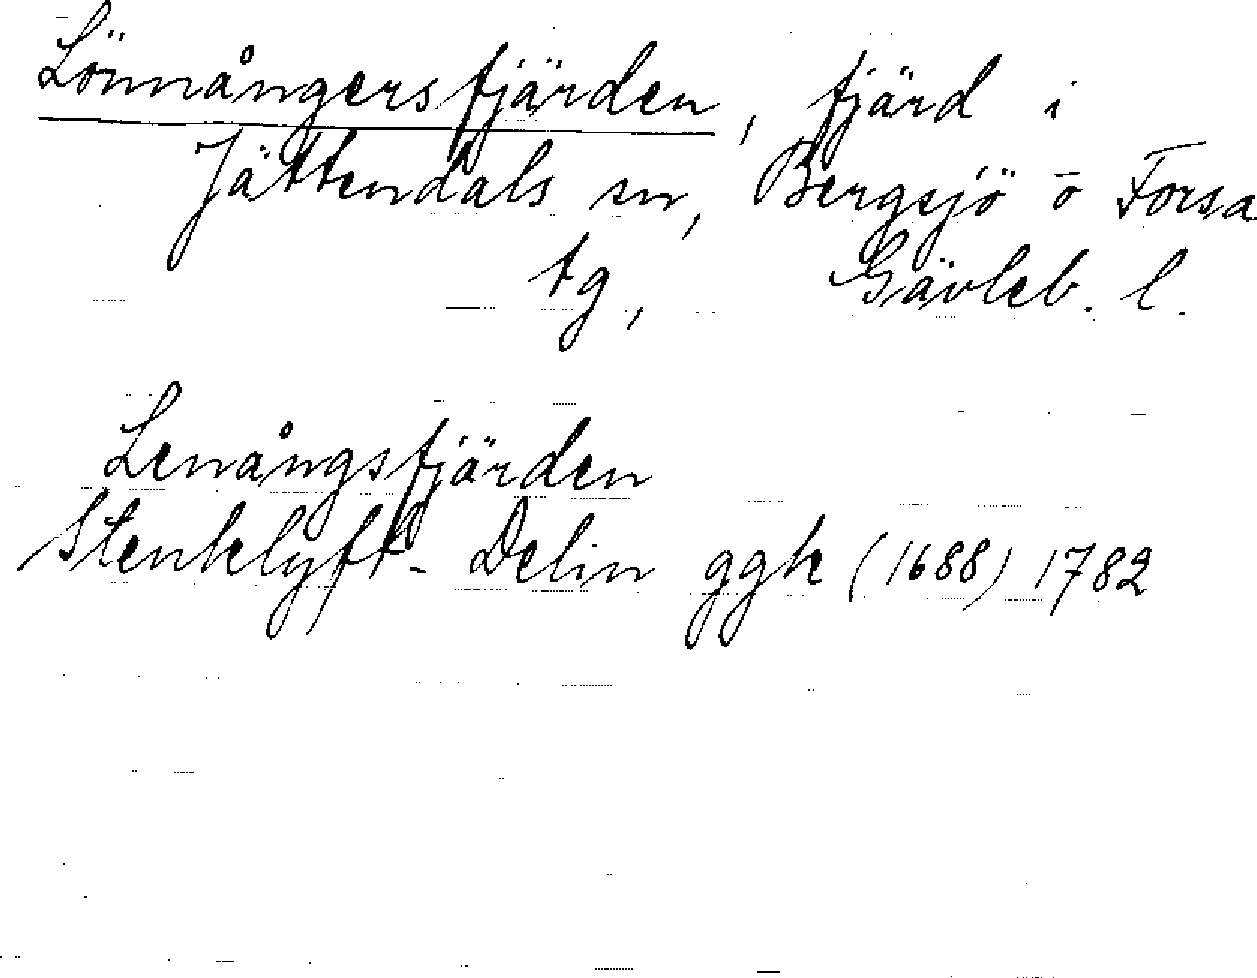 Lönnångersfjärden, fjärd i
Jättendals sn, Bergsjö o Forsa
tg, Gävleb. l.
Lenångsfjärden
Stenklyft- Delin ggk (1688) 1782